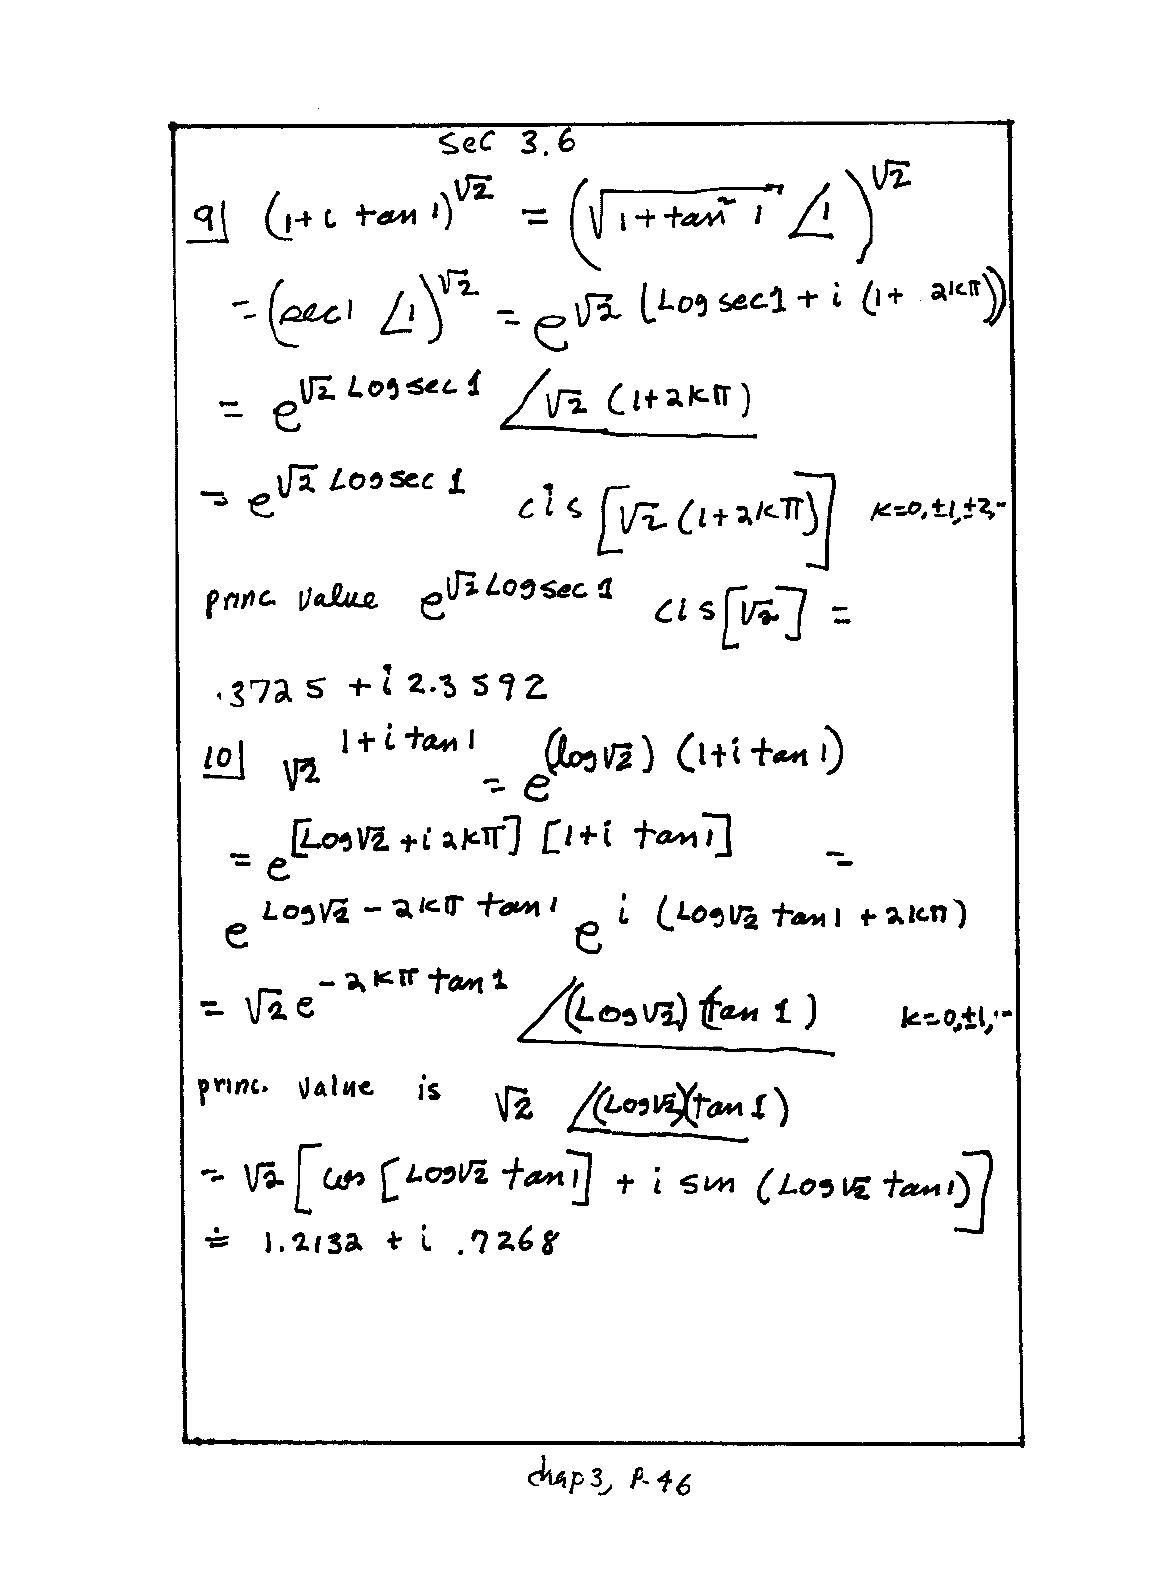 Sec 3.6
9] (1+i tan 1)^√2 = (√(1+tan² 1) ∠1)^√2
= (sec1 ∠1)^√2 = e^√2 (Log sec1 + i (1+ 2kπ))
= e^√2 Log sec 1 ∠√2 (1+2kπ)
= e^√2 Log sec 1 cis [√2 (1+2kπ)] k=0,±1,±2,--
princ. value e^√2 Log sec 1 cis [√2] =
.3725 + i 2.3592
10] √2^1+i tan 1 = e^(log √2) (1+i tan 1)
= e^[Log √2 + i 2kπ] [1+i tan 1] =
e^Log √2 - 2kπ tan 1 e^i (Log √2 tan 1 + 2kπ)
= √2 e^-2kπ tan 1 ∠(Log √2) (tan 1) k=0,±1,--
princ. value is √2 ∠(Log √2)(tan 1)
= √2 [cos [Log √2 tan 1] + i sin (Log √2 tan 1)]
≐ 1.2132 + i .7268
chap 3, p. 46